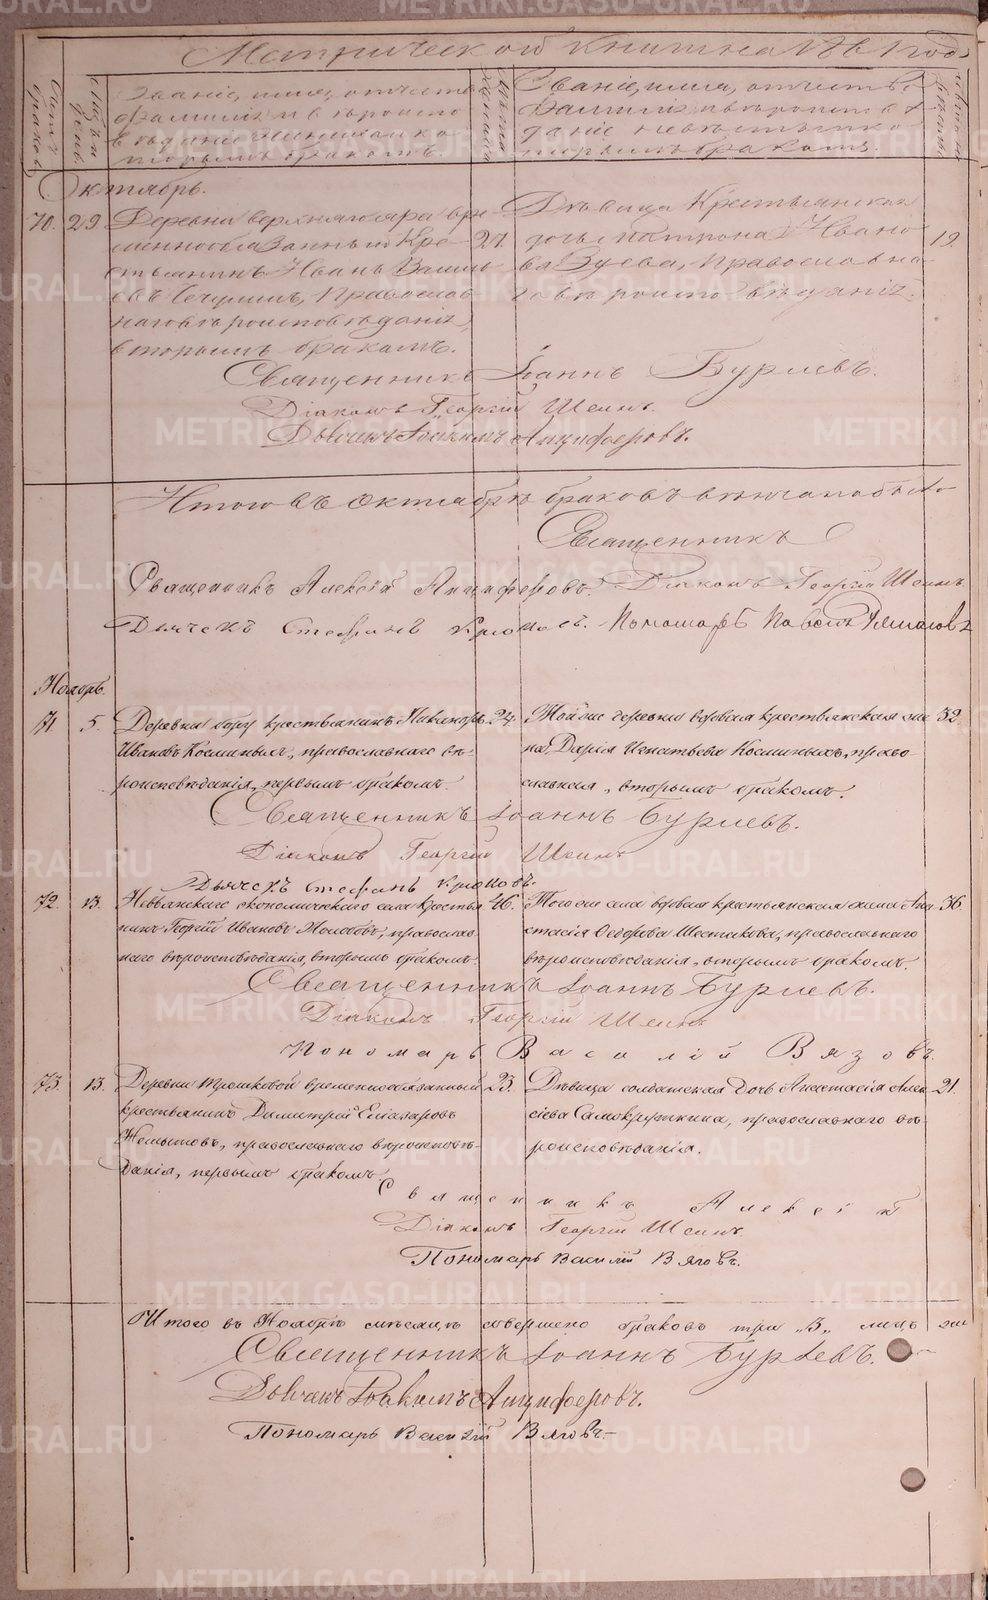 Метрической книги на 18 год
Званіе, имя, отчество
фамилія и вѣроиспо
вѣданіе жениха и ко
торымъ бракомъ.
Званіе, имя, отчество
фамилія и вѣроиспо
даніе невѣсты и ко
торымъ бракомъ.
Октябрь.
70. 29 Деревни вре
меннообязанный Кре 27.
стьянинъ Иванъ Васил
евъ Православ
наго вѣроисповѣданія,
вторымъ бракомъ.
Дѣвица Крестьянская
дочь Матрона Ивано 19.
ва Зуева, Православна
го вѣроисповѣданія.
Священникъ Іоаннъ Бурцевъ.
Діаконъ Георгій Шеинъ.
Дьячекъ Іоакимъ Анциферовъ.
Итого въ Октябрѣ браковъ вѣнчано было
Священникъ
Священникъ Алексій Анциферовъ. Діаконъ Георгій Шеинъ
Дьячекъ Стефанъ Крюковъ. Пономарь Павелъ
Ноябрь.
71. 5. Деревни бору крестьянинъ Никаноръ 24.
Ивановъ Косминыхъ, православнаго вѣ-
роисповѣданія, первымъ бракомъ.
Той же деревни вдовая крестьянская же 32.
на Дарія Игнатьева Косминыхъ, право-
славная, вторымъ бракомъ.
Священникъ Іоаннъ Бурцевъ.
Діаконъ Георгій Шеинъ
Дьячекъ Стефанъ Крюковъ.
72. 13. Невьянскаго экономическаго села крестья 46.
нинъ Георгій Ивановъ православ
наго вѣроисповѣданія, вторымъ бракомъ.
Того же села вдовая крестьянская жена Ана 36.
стасія Ѳедорова Шестакова, православнаго
вѣроисповѣданія, вторымъ бракомъ.
Священникъ Іоаннъ Бурцевъ.
Діаконъ Георгій Шеинъ
Пономарь Василій Вязовъ
73. 13. Деревни Трошковой временнообязанный 23.
крестьянинъ Димитрій Елиазаровъ
православнаго вѣроисповѣ-
данія, первымъ бракомъ.
Дѣвица солдатская дочь Анастасія Алек 21.
сіева Самокруткина, православнаго вѣ-
роисповѣданія.
Священникъ Алексій
Діаконъ Георгій Шеинъ
Пономарь Василій Вязовъ.
Итого въ Ноябрѣ мѣсяцѣ совершено браковъ три „3„ лицъ же
Священникъ Іоаннъ Бурцевъ.
Дьячекъ Іоакимъ Анциферовъ.
Пономарь Василій Вязовъ
METRIKI.GASO-URAL.RU